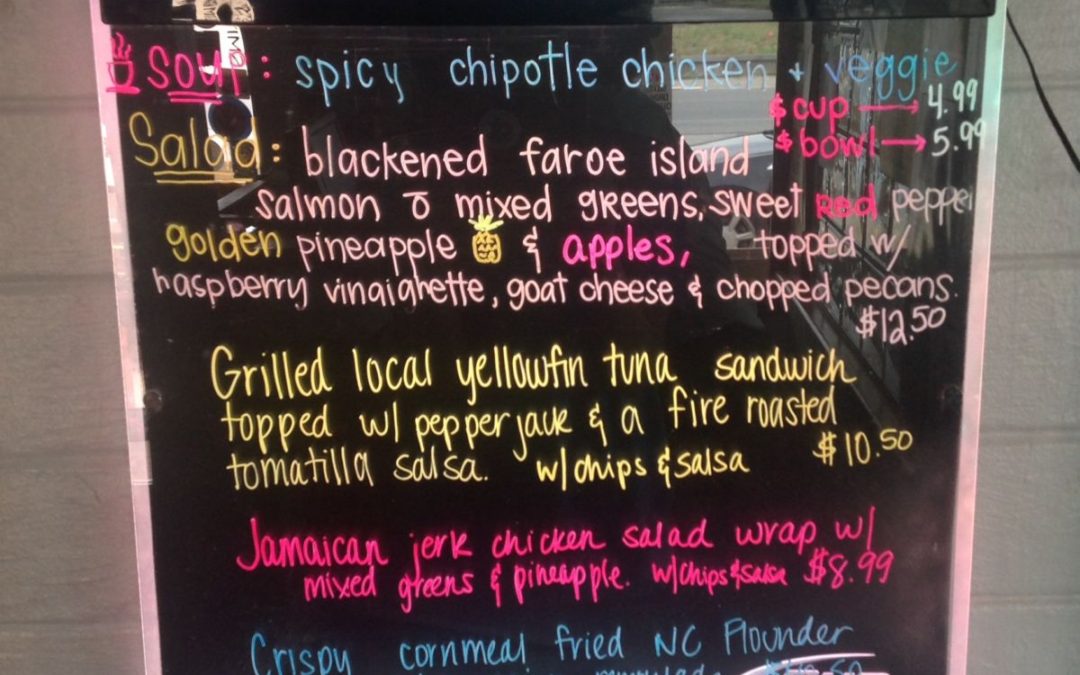 Soup: spicy chipotle chicken + veggie
$ cup → 4.99
$ bowl → 5.99
Salad: blackened faroe island
salmon c̄ mixed greens, sweet red pepper
golden pineapple & apples, topped w/
raspberry vinaigrette, goat cheese & chopped pecans.
$12.50
Grilled local yellowfin tuna sandwich
topped w/ pepperjack & a fire roasted
tomatilla salsa. w/chips & salsa $10.50
Jamaican jerk chicken salad wrap w/
mixed greens & pineapple. w/chips & salsa $8.99
Crispy cornmeal fried NC Flounder